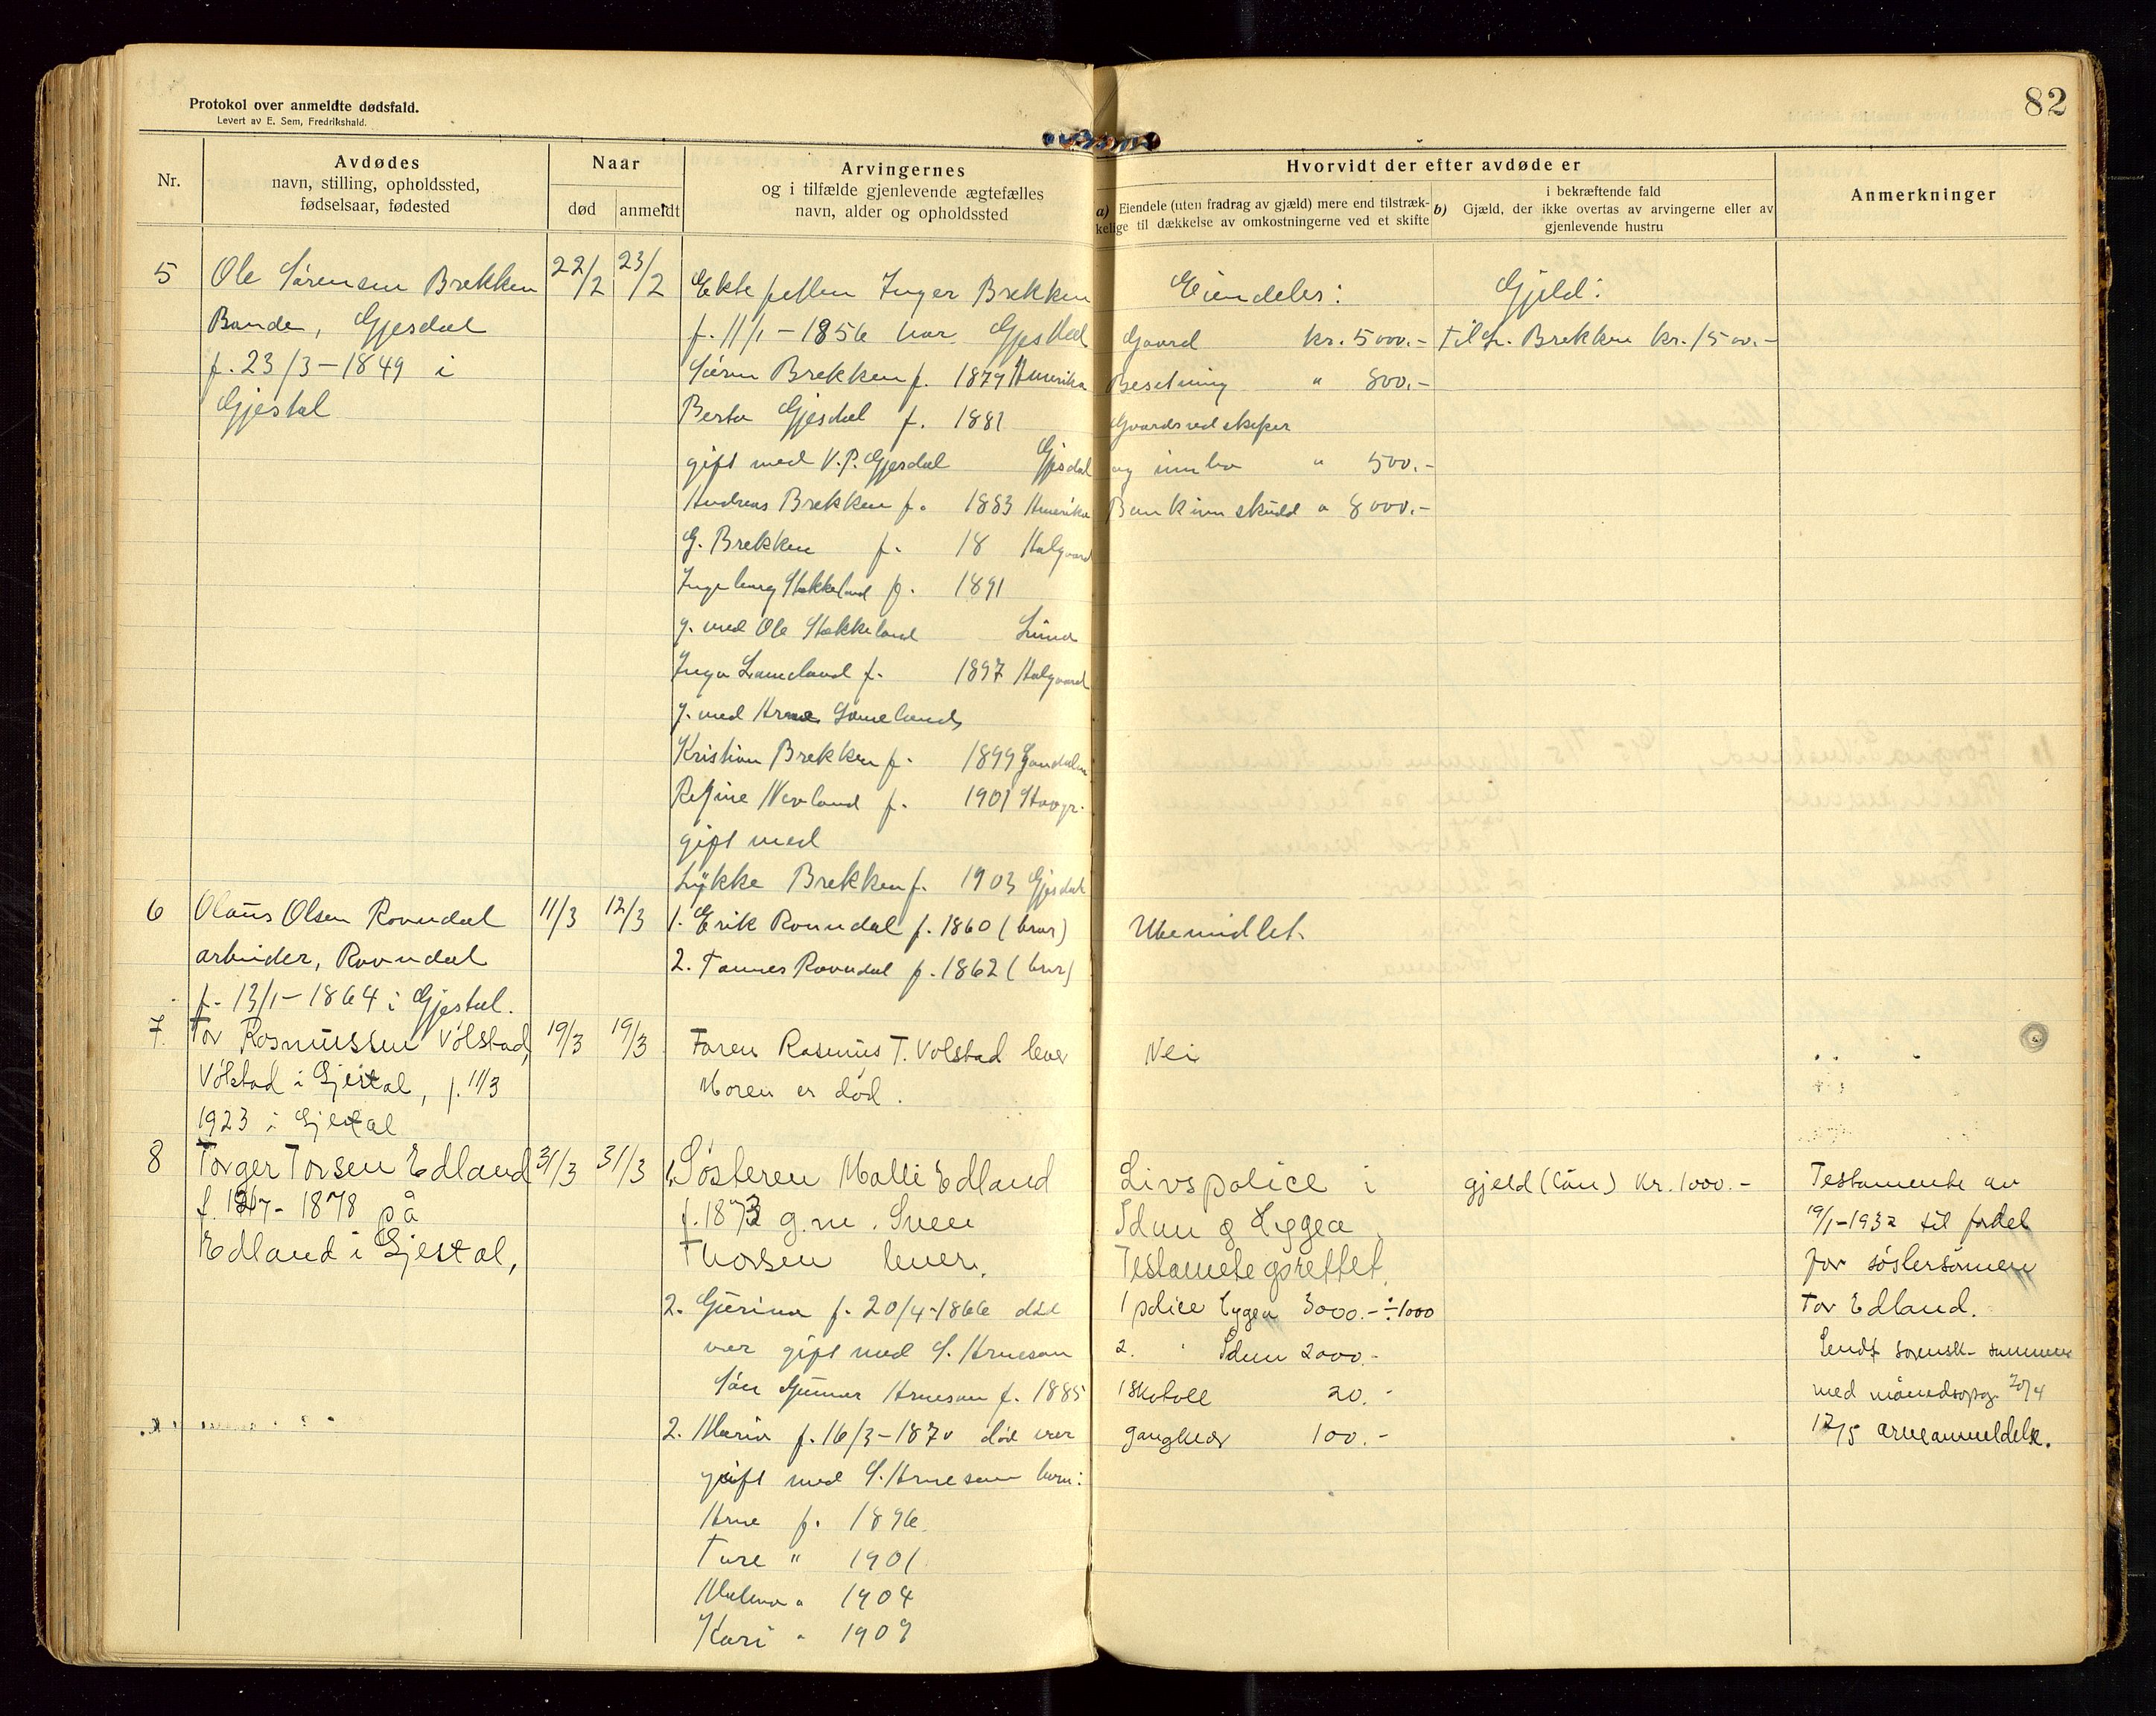 Protokol over anmeldte dødsfald.
Levert av E. Sem, Fredrikshald.
82
Nr.
Avdødes
navn, stilling, opholdssted,
fødselsaar, fødested
Naar
død
anmeldt
Arvingernes
og i tilfælde gjenlevende ægtefælles
navn, alder og opholdssted
Hvorvidt der efter avdøde er
a) Eiendele (uten fradrag av gjæld) mere end tilstræk-
kelige til dækkelse av omkostningerne ved et skifte
i bekræftende fald
b) Gjæld, der ikke overtas av arvingerne eller av
gjenlevende hustru
Anmerkninger
5
Ole Sørensen Brekken
Bonde, Gjesdal
f. 23/3 - 1849 i
Gjestal
22/2
23/2
Ektefellen Inger Brekken
f. 11/1 - 1856 Gjesdal
Søren Brekken f. 1879 Amerika
Berta Gjesdal f. 1881
gift med V.P. Gjesdal Gjesdal
Andreas Brekken f. 1883 Amerika
G. Brekken f. 18 Aalgaard
Ingeborg Stokkeland f. 1891
g. med Ole Stokkeland Lund
Inga Limeland f. 1897 Aalgaard
g. med Arne
Kristian Brekken f. 1899 Gandalen
f. 1901
gift med
Lykke Brekken f. 1903 Gjesdal
Eiendeler:
Gaard kr. 5000.-
Besetning " 800.-
Gaardsredskaper
og innbo " 500.-
Bankinnskudd " 8000.-
Gjeld:
Til Brekken kr. 1500.-
6
Olaus Olsen Ravndal
arbeider, Ravndal
f. 13/1 - 1864 i Gjestal.
11/3
12/3
1. Erik Ravndal f. 1860 (bror)
2. Tønnes Ravndal f. 1862 (bror)
Ubemidlet.
7.
Tor Rasmussen Vølstad,
Vølstad i Gjestal, f. 11/3
1923 i Gjestal
19/3
19/3
Faren Rasmus T. Vølstad lever
Moren er død.
Nei
8
Torger Torsen Edland
f. 1878 på
Edland i Gjestal,
31/3
31/3
1. Søsteren Malli Edland
f. 1873 g.m. Sven
Thorsen lever.
2. Gurina f. 20/4 - 1866 død
var gift med S. Arneson
Søn Gunnar Arneson f. 1885
2. Maria f. 16/3 - 1870 død var
gift med S. Arneson barn:
Arne f. 1896.
Tore " 1901
Malena " 1904
Kari " 1909
Livspolice i
Idun og Hygea
Testamete oprettet.
1 police Hygea 3000.- ÷ 1000
2. " Idun 2000.-
1 skatoll 20.-
gangklær 100.-
gjeld (lån) kr. 1000.-
Testamente av
19/1 - 1932 til fordel
for søstersønnen
Tor Edland.
Sendt sorensk. sammen
med månedsopg. 20/4
12/5 arveanmeldelse.